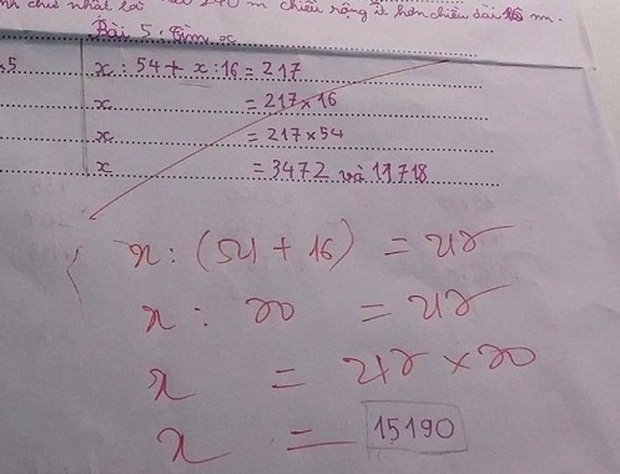 nh chữ nhật là 240 m chiều rộng ít hơn chiều dài 16 m.
Bài 5: Tìm x
x5
x : 54 + x : 16 = 217
x = 217 x 16
x = 217 x 54
x = 3472 và 11718
x : (54 + 16) = 217
x : 70 = 217
x = 217 x 70
x = 15190